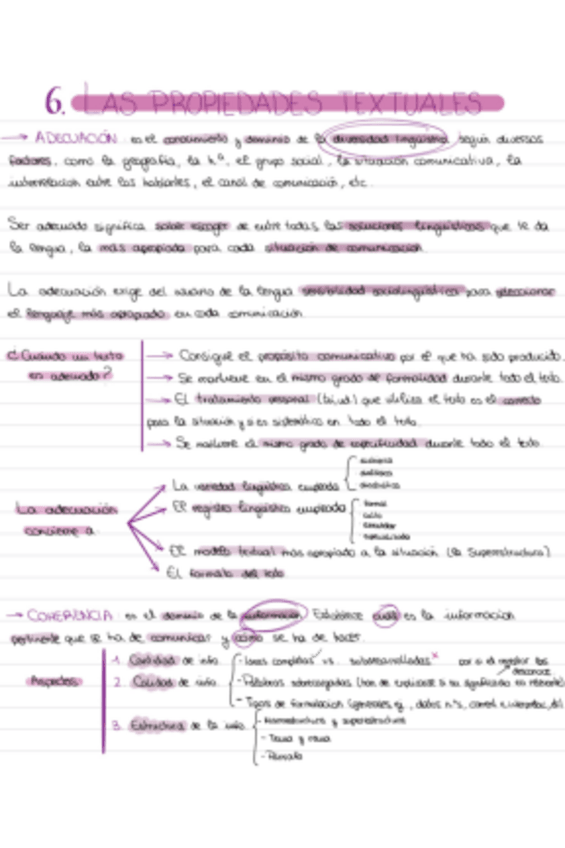 6. LAS PROPIEDADES TEXTUALES
→ ADECUACIÓN: es el conocimiento y dominio de la diversidad lingüística según diversos
factores, como la geografía, la hª, el grupo social, la situación comunicativa, la
interrelación entre los hablantes, el canal de comunicación, etc.
Ser adecuado significa saber escoger de entre todas las soluciones lingüísticas que te da
la lengua, la más apropiada para cada situación de comunicación.
La adecuación exige del usuario de la lengua sensibilidad sociolingüística para seleccionar
el lenguaje más apropiado en cada comunicación.
¿Cuándo un texto
es adecuado?
→ Consigue el propósito comunicativo por el que ha sido producido.
→ Se mantiene en el mismo grado de formalidad durante todo el texto.
→ El tratamiento personal (tú, ud) que utiliza el texto es el correcto
para la situación y si es sistemático en todo el texto.
→ Se mantiene el mismo grado de especificidad durante todo el texto.
La adecuación
concierne a
La variedad lingüística empleada
El registro lingüístico empleado
formal
culto
El modelo textual más apropiado a la situación (la superestructura)
El formato del texto
→ COHERENCIA: es el dominio de la información. Establece cuál es la información
pertinente que se ha de comunicar y cómo se ha de hacer.
Aspectos
1. Cantidad de info.
- Ideas completas ✓ vs. subdesarrolladas x por si el receptor las
desconoce
2. Calidad de info.
- Palabras sobrecargadas (han de explicarse si su significado es relevante)
- Tipos de formulación (generales, ej., datos nºs,
3. Estructura de la info.
- Macroestructura y superestructura
- Tema y rema
- Párrafo